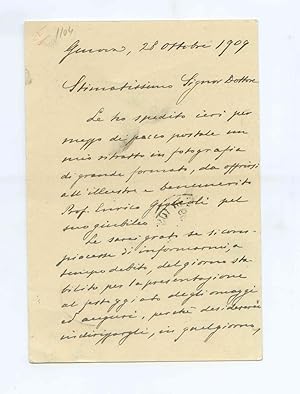 1104
Genova, 28 Ottobre 1909
Stimatissimo Signor Dottore
Le ho spedito ieri per
mezzo di pacco postale un
mio ritratto in fotografia
di grande formato, da offrirsi
all'illustre e benemerito
Prof. Enrico Giglioli pel
suo giubileo.
Le sarei grato se si com-
piacesse di informarmi, a
tempo debito, del giorno sta-
bilito per la presentazione
al festeggiato degli omaggi
ed auguri, perchè desidererei
indirizzargli, in quel giorno,